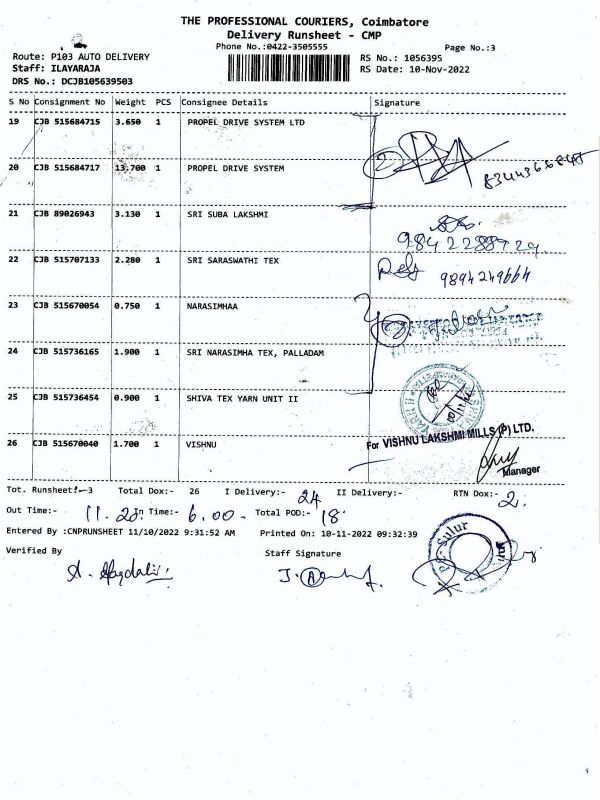 THE PROFESSIONAL COURIERS, Coimbatore
Delivery Runsheet - CMP
Phone No.:0422-3505555
Page No.:3
Route: P103 AUTO DELIVERY
RS No.: 1056395
Staff: ILAYARAJA
RS Date: 10-Nov-2022
DRS No.: DCJB105639503
S No Consignment No Weight PCS Consignee Details Signature
19 CJB 515684715 3.650 1 PROPEL DRIVE SYSTEM LTD
20 CJB 515684717 13.700 1 PROPEL DRIVE SYSTEM
21 CJB 89026943 3.130 1 SRI SUBA LAKSHMI
22 CJB 515707133 2.280 1 SRI SARASWATHI TEX
9894249664
23 CJB 515670054 0.750 1 NARASIMHAA
24 CJB 515736165 1.900 1 SRI NARASIMHA TEX, PALLADAM
25 CJB 515736454 0.900 1 SHIVA TEX YARN UNIT II
26 CJB 515670040 1.700 1 VISHNU
For VISHNU LAKSHMI MILLS (P) LTD.
Manager
Tot. Runsheet:- 3 Total Dox:- 26 I Delivery:- 24 II Delivery:- RTN Dox:- 2.
Out Time:- 11.20 In Time:- 6.00 Total POD:- 18
Entered By :CNPRUNSHEET 11/10/2022 9:31:52 AM Printed On: 10-11-2022 09:32:39
Verified By Staff Signature
Sulur